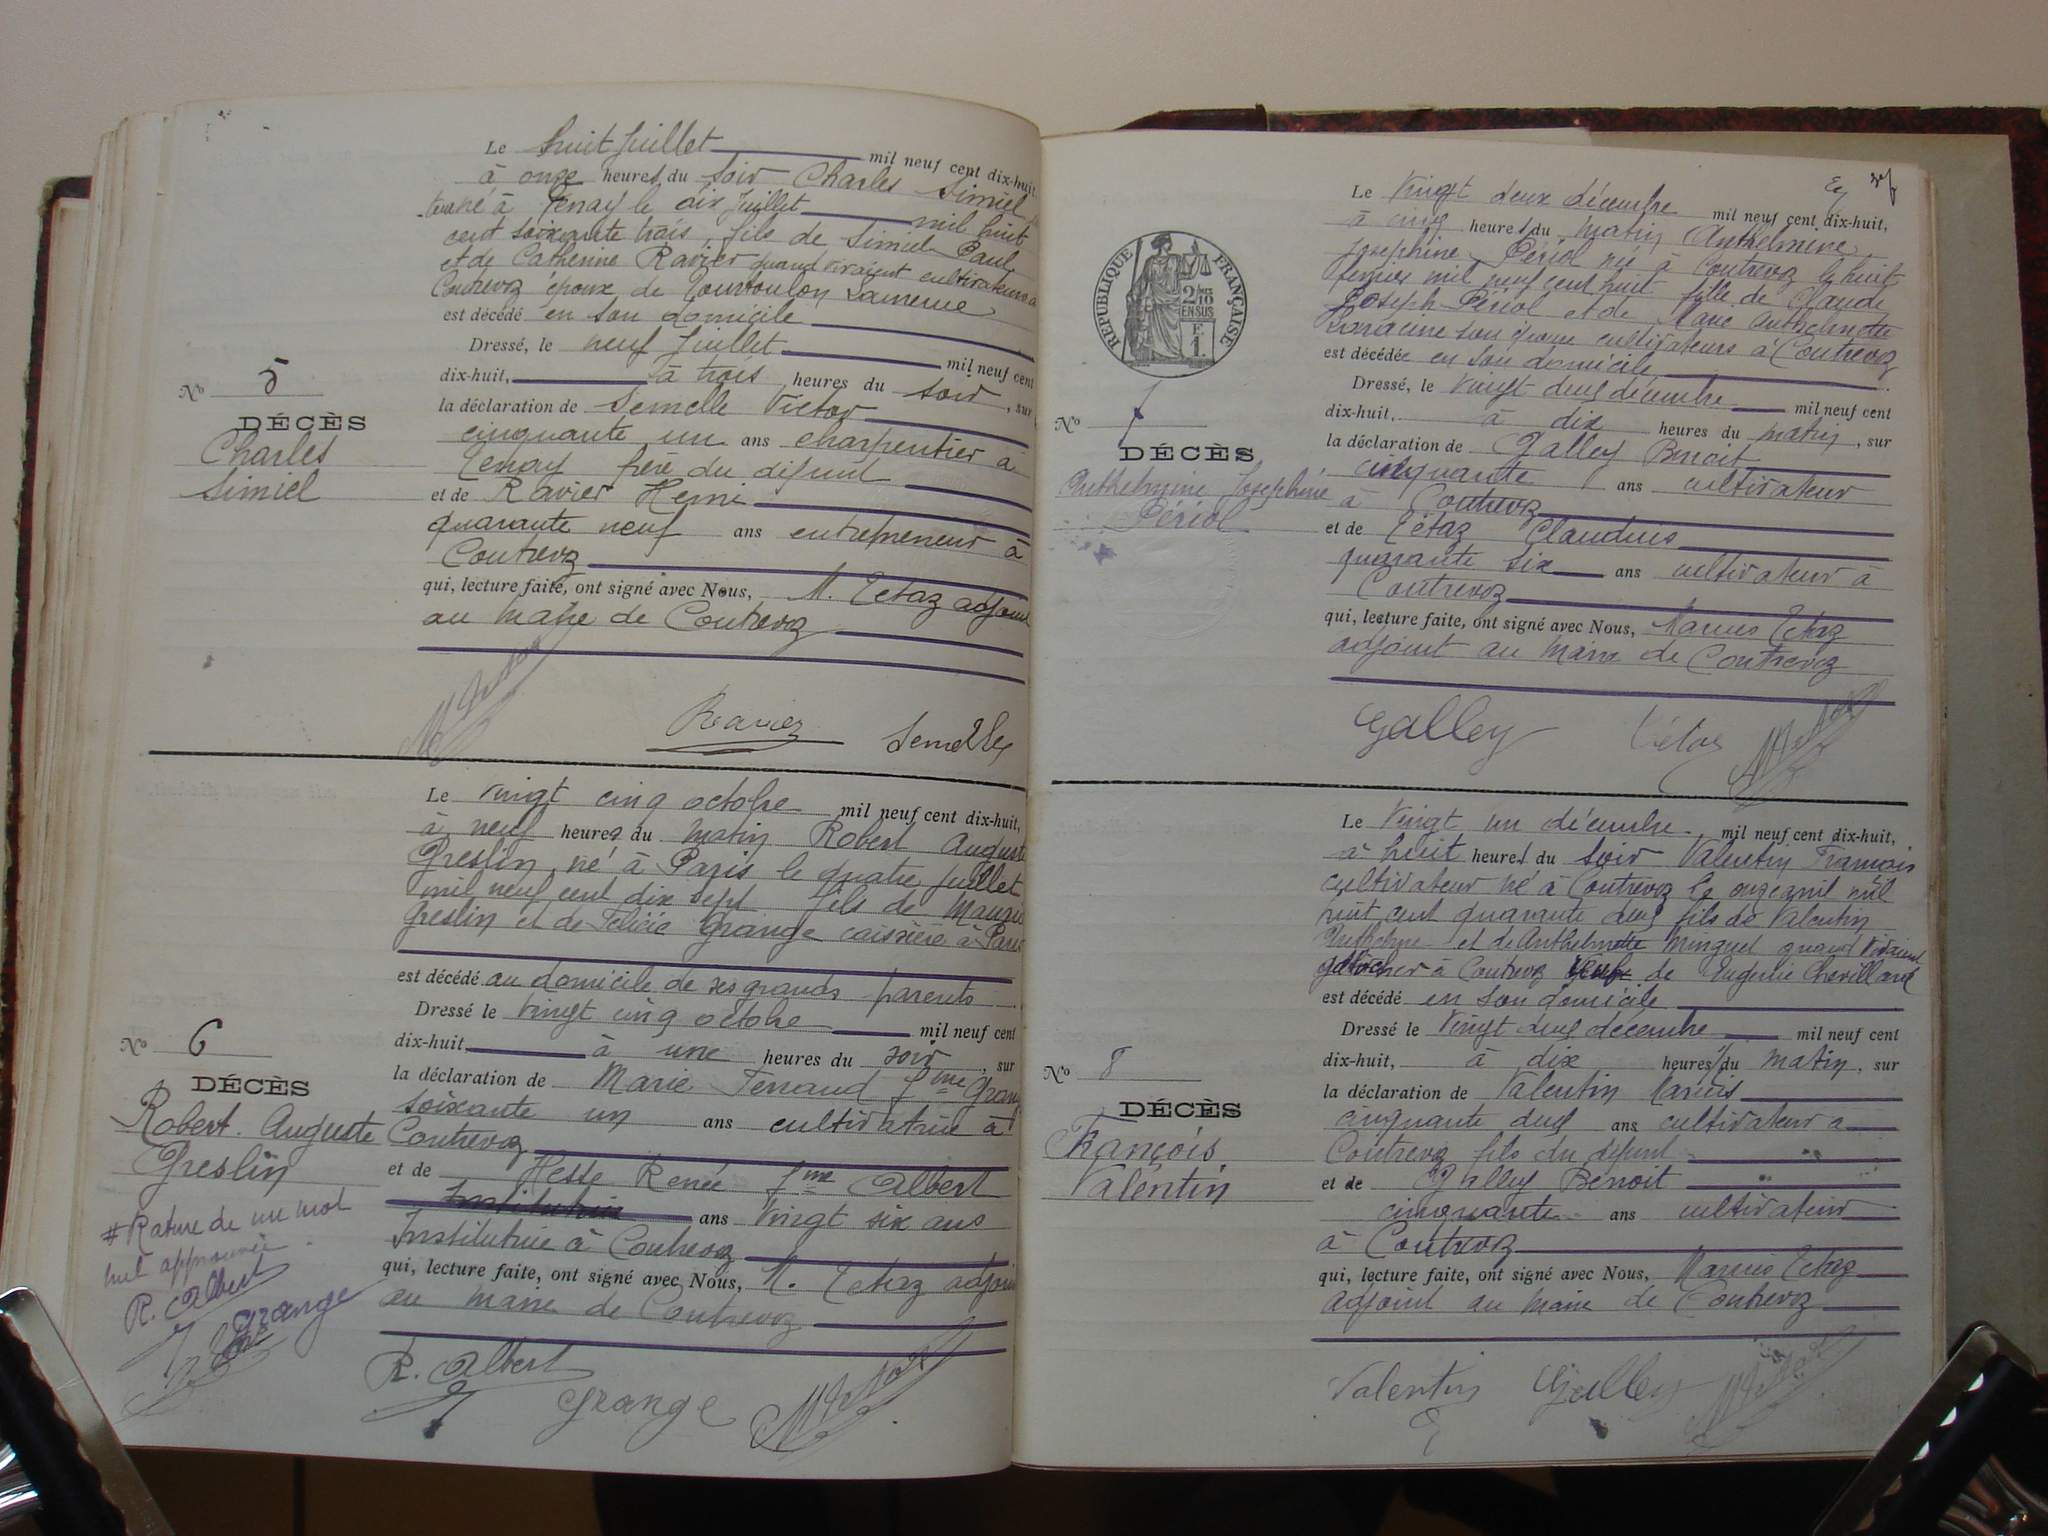 Le huit juillet mil neuf cent dix-huit,
à onze heures du soir Charles Simiel
né à Tenay le dix juillet mil huit
cent soixante trois, fils de Simiel Paul
et de Catherine Ravier quand vivaient cultivateurs à
Contrevoz époux de
est décédé en son domicile
Dressé, le neuf juillet mil neuf cent
dix-huit, à trois heures du soir, sur
la déclaration de Semelle Victor
cinquante un ans charpentier à
Tenay frère du défunt
et de Ravier Henri
quarante neuf ans entrepreneur à
Contrevoz
qui, lecture faite, ont signé avec Nous, M. Tétaz adjoint
au maire de Contrevoz
No 5
DÉCÈS
Charles
Simiel
Ravier Semelle
Le vingt cinq octobre mil neuf cent dix-huit,
à neuf heures du matin Robert Auguste
Greslin, né à Paris le quatre juillet
mil neuf cent dix sept fils de Maurice
Greslin et de Félicie Grange caissière à Paris
est décédé au domicile de ses grands parents
Dressé le vingt cinq octobre mil neuf cent
dix-huit, à une heures du soir, sur
la déclaration de Marie Ferraud fme Grange
soixante un ans cultivatrice à
Contrevoz
et de Hesse Renée fme Albert
Institutrice ans vingt six ans
Institutrice à Contrevoz
qui, lecture faite, ont signé avec Nous, M. Tétaz adjoint
au maire de Contrevoz
No 6
DÉCÈS
Robert Auguste
Greslin
# Rature de un mot
nul approuvée
R. Albert
Grange
R. Albert
Grange
Le vingt deux décembre mil neuf cent dix-huit,
à cinq heures du matin Anthelmine
Joséphine Périol née à Contrevoz le huit
février mil neuf cent huit fille de Claude
Joseph Périol et de Marie Anthelmette
son épouse cultivateurs à Contrevoz
est décédée en son domicile
Dressé, le vingt deux décembre mil neuf cent
dix-huit, à dix heures du matin, sur
la déclaration de Galley Benoit
cinquante ans cultivateur
à Contrevoz
et de Tétaz Claudius
quarante six ans cultivateur à
Contrevoz
qui, lecture faite, ont signé avec Nous, Marius Tétaz
adjoint au maire de Contrevoz
RÉPUBLIQUE FRANÇAISE
2/10
EN SUS
F.
1.
No 7
DÉCÈS
Anthelmine Joséphine
Périol
Galley Tétaz
Le vingt un décembre mil neuf cent dix-huit,
à huit heures du soir Valentin François
cultivateur né à Contrevoz le onze avril mil
huit cent quarante deux fils de Valentin
Anthelme et de Anthelmette Minguet quand vivaient
à Contrevoz veuf de Eugénie Chevillard
est décédé en son domicile
Dressé le vingt deux décembre mil neuf cent
dix-huit, à dix heures du matin, sur
la déclaration de Valentin Marius
cinquante deux ans cultivateur à
Contrevoz fils du défunt
et de Galley Benoit
cinquante ans cultivateur
à Contrevoz
qui, lecture faite, ont signé avec Nous, Marius Tétaz
adjoint au maire de Contrevoz
No 8
DÉCÈS
François
Valentin
Valentin Galley